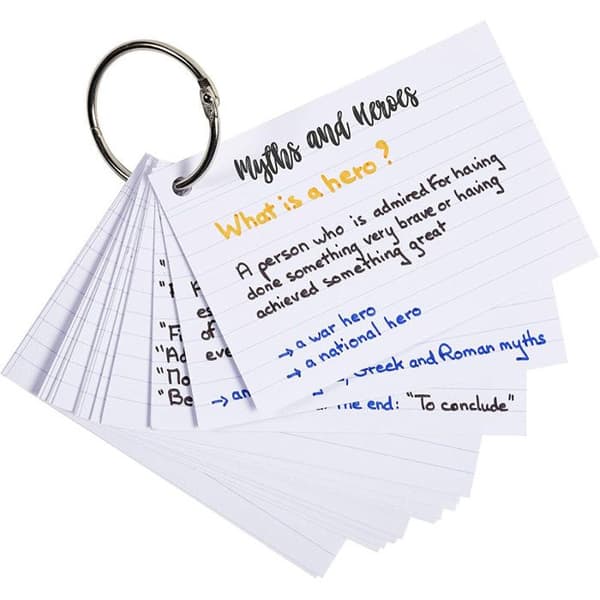 Myths and Heroes
What is a hero?
A person who is admired for having
done something very brave or having
achieved something great
→ a war hero
→ a national hero
→ an
Greek and Roman myths
of
eve
the end: "To conclude"